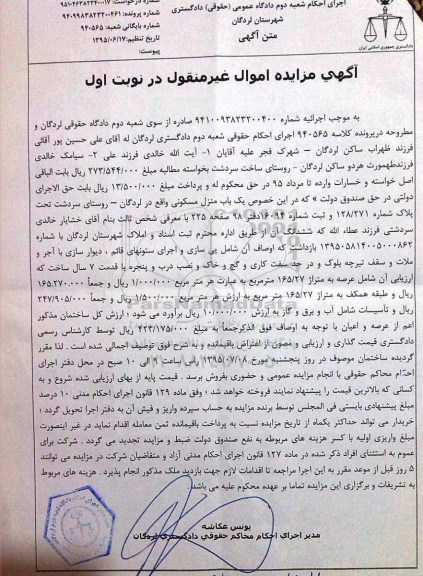 اجرای احکام شعبه دوم دادگاه عمومی (حقوقی) دادگستری
شهرستان لردگان
متن آگهی
شماره پرونده: ۹۴۰۹۹۸۳۸۲۳۲۰۰۴۶۱
شماره بایگانی شعبه: ۹۴۰۵۶۵
تاریخ تنظیم: ۱۳۹۵/۰۶/۱۷
پیوست:
دادگستری جمهوری اسلامی ایران
آگهی مزایده اموال غیرمنقول در نوبت اول
به موجب اجرائیه شماره ۹۴۱۰۰۹۳۸۲۳۲۰۰۴۰۰ صادره از سوی شعبه دوم دادگاه حقوقی لردگان و
مطروحه درپرونده کلاسه ۹۴۰۵۶۵ اجرای احکام حقوقی شعبه دوم دادگستری لردگان له آقای علی حسین پور آقائی
فرزند ظهراب ساکن لردگان – شهرک فجر علیه آقایان ۱- آیت الله خالدی فرزند علی ۲- سیامک خالدی
فرزندطهمورث هردو ساکن لردگان - روستای ساخت سردشت بخواسته مطالبه مبلغ ۲۷۳/۵۴۴/۰۰۰ ریال بابت الباقی
اصل خواسته و خسارات وارده تا مرداد ۹۵ در حق محکوم له و پرداخت مبلغ ۱۳/۵۰۰/۰۰۰ ریال بابت حق الاجرای
دولتی در حق صندوق دولت » که در این خصوص یک باب منزل مسکونی واقع در لردگان – روستای سردشت تحت
پلاک شماره ۱۲۸/۲۷۱ و ثبت شماره ۱۶۰۹۴ دفتر ۹۸ صفحه ۲۲۵ با معرفی شخص ثالث بنام آقای خشایار خالدی
سردشتی فرزند عطاء الله که ششدانگ آن از طریق اداره محترم ثبت اسناد و املاک شهرستان لردگان با شماره
۱۳۹۵۰۵۸۱۴۰۰۵۰۰۰۸۶۲ بازداشت که اوصاف آن شامل پی سازی و اجرای ستونهای قائم ، دیوار سازی با آجر و
ملات و سقف تیرچه بلوک و در حد سفت کاری و گچ و خاک و نصب درب و پنجره با قدمت ۷ سال ساخت که
ارزیابی آن شامل عرصه به متراژ ۱۶۵/۲۷ مترمربع به عبارت هر متر مربع ۱/۰۰۰/۰۰۰ ریال و جمعاً ۱۶۵.۲۷۰.۰۰۰
ریال و طبقه همکف به متراژ ۱۶۵/۲۷ متر مربع به ارزش هر متر مربع ۱/۵۰۰/۰۰۰ ریال و جمعاً ۲۴۷/۹۰۵/۰۰۰
ریال و تأسیسات شامل آب و برق و گاز به ارزش ۱۰/۰۰۰/۰۰۰ ریال برآورد می شود ؛ ارزش کل ساختمان مذکور
اعم از عرصه و اعیان با توجه به اوصاف فوق الذکرجمعاً به مبلغ ۴۲۳/۱۷۵/۰۰۰ ریال توسط کارشناس رسمی
دادگستری قیمت گذاری و ارزیابی و مصون از اعتراض باقیمانده و به شرح فوق توصیف اجمالی شده است . لذا مقرر
گردیده ساختمان موصوف در روز پنجشنبه مورخ ۱۳۹۵/۰۷/۰۸ راس ساعت ۹ الی ۱۰ صبح در محل دفتر اجرای
احکام محاکم حقوقی با انجام مزایده عمومی و حضوری بفروش برسد . قیمت پایه از بهای ارزیابی شده شروع و به
کسانی که بالاترین قیمت را پیشنهاد نمایند فروخته خواهد شد ؛ وفق ماده ۱۲۹ قانون اجرای احکام مدنی ۱۰ درصد
مبلغ پیشنهادی بایستی فی المجلس توسط برنده مزایده به حساب سپرده واریز و فیش آن به دفتر اجرا تحویل گردد ؛
خریدار می تواند حداکثر یکماه از تاریخ مزایده نسبت به پرداخت باقیمانده ثمن معامله اقدام نماید در غیر اینصورت
مبلغ واریزی اولیه با کسر هزینه های مربوطه به نفع صندوق دولت ضبط و مزایده تجدید می گردد . شرکت برای
عموم به استثنای افراد ذکر شده در ماده ۱۲۷ قانون اجرای احکام مدنی آزاد و متقاضیان شرکت در مزایده می توانند
۵ روز قبل از موعد مقرر به این اجرا مراجعه تا اقدامات لازم جهت بازدید ملک مذکور انجام پذیرد . هزینه های مربوط
به تشریفات و برگزاری این مزایده تماما بر عهده محکوم علیه می باشد
یونس عکاشه
مدیر اجرای احکام محاکم حقوقی دادگستری لردگان